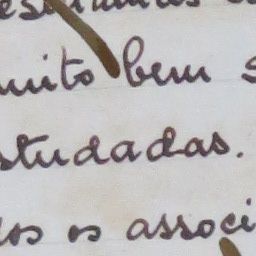 muito bem
studadas.
os os associ